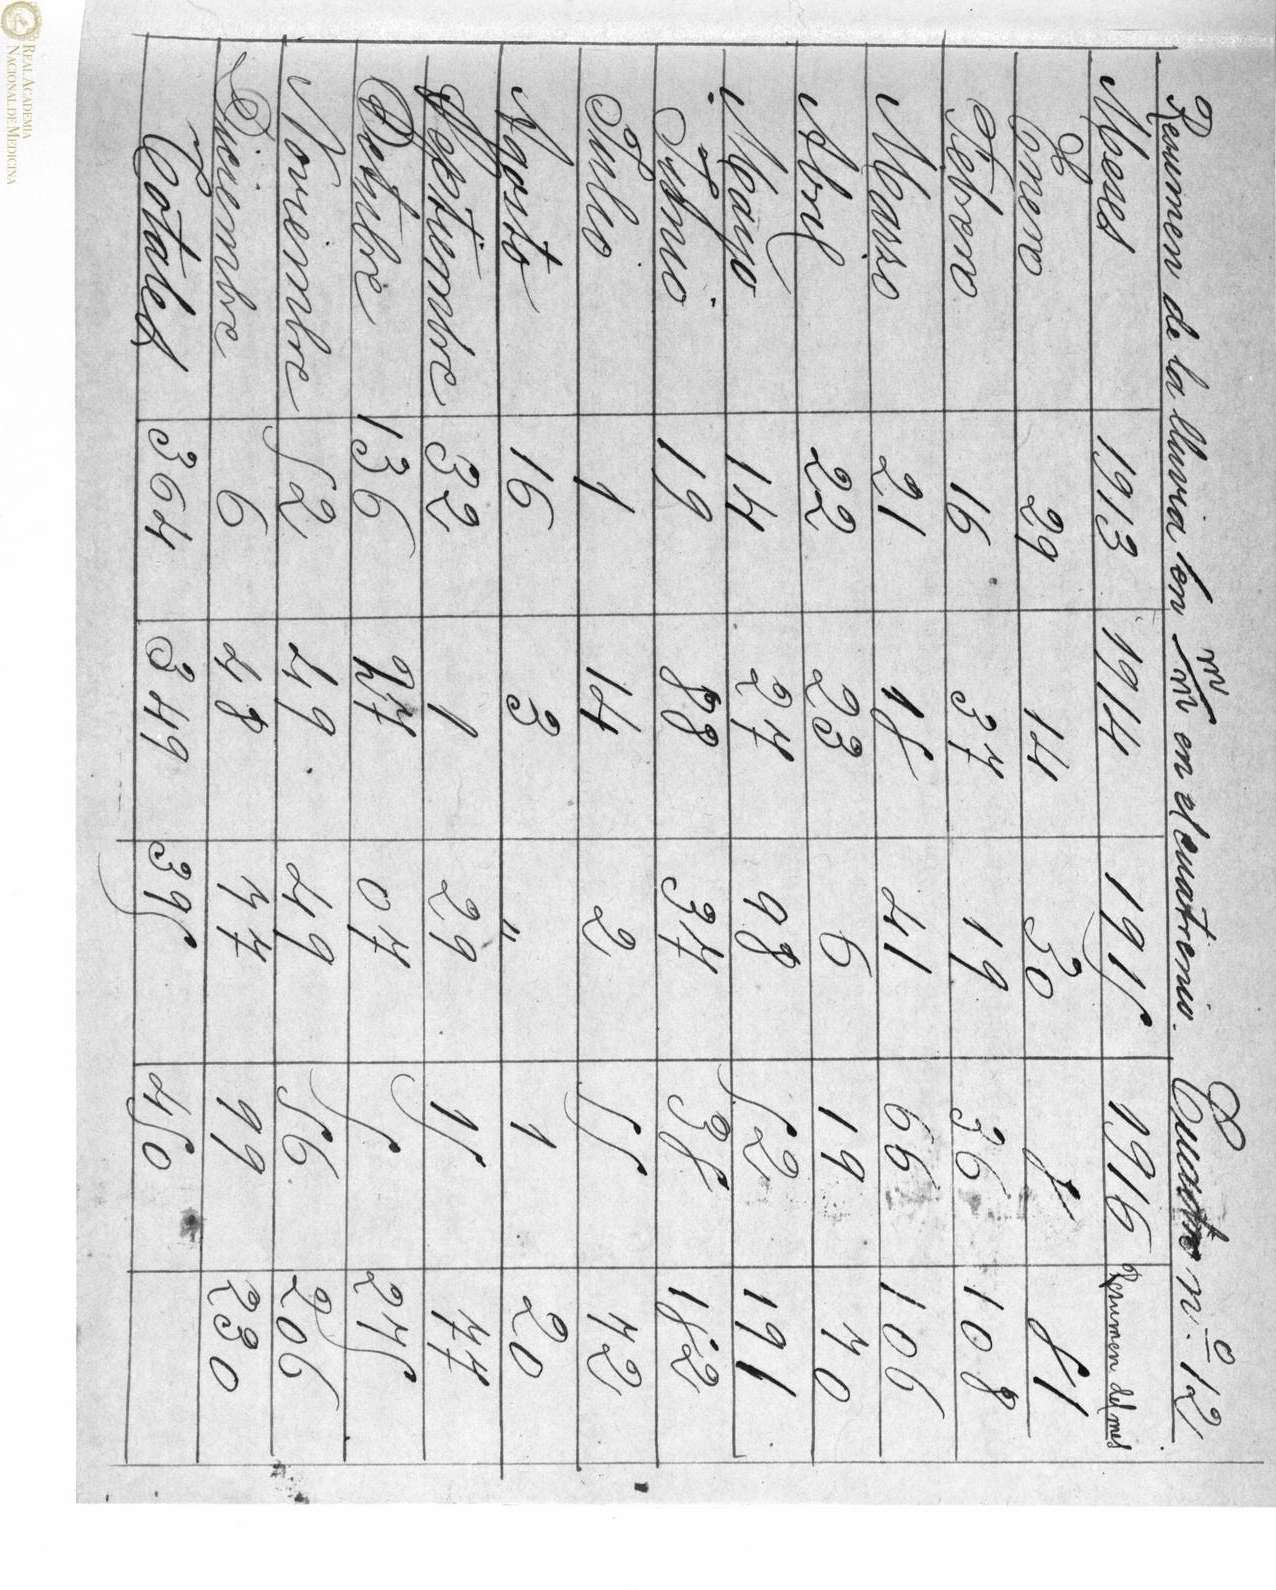 Resumen de la lluvia en m/m en el cuatrenio. Cuadro n.º 12
Meses 1913 1914 1915 1916 Resumen del mes
Enero 29 14 30 8 81
Febrero 16 37 19 36 108
Marso 21 18 41 66 106
Abril 22 23 6 19 70
Mayo 14 27 98 52 191
Junio 19 88 37 38 182
Julio 1 14 2 55 72
Agosto 16 3 " 1 20
Septiembre 32 1 29 15 77
Octubre 136 27 07 5 275
Noviembre 52 49 49 56 206
Diciembre 6 48 77 99 230
Totales 364 349 395 450
REAL ACADEMIA
NACIONAL DE MEDICINA